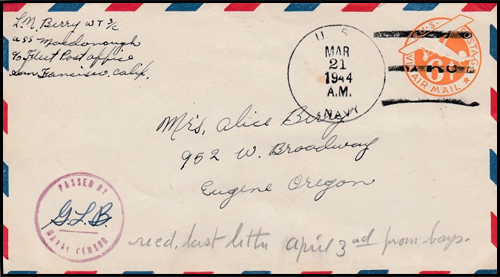 L.N. Berry WT 3/c
USS Macdonough
c/o Fleet Post Office
San Francisco, Calif.
U.S.
MAR
21
1944
A.M.
NAVY
U.S. POSTAGE
6¢
VIA AIR MAIL
Mrs. Alice Berry
952 W. Broadway
Eugene Oregon
PASSED BY
G.L.B.
NAVAL CENSOR
recd. last letter April 3rd from boys.